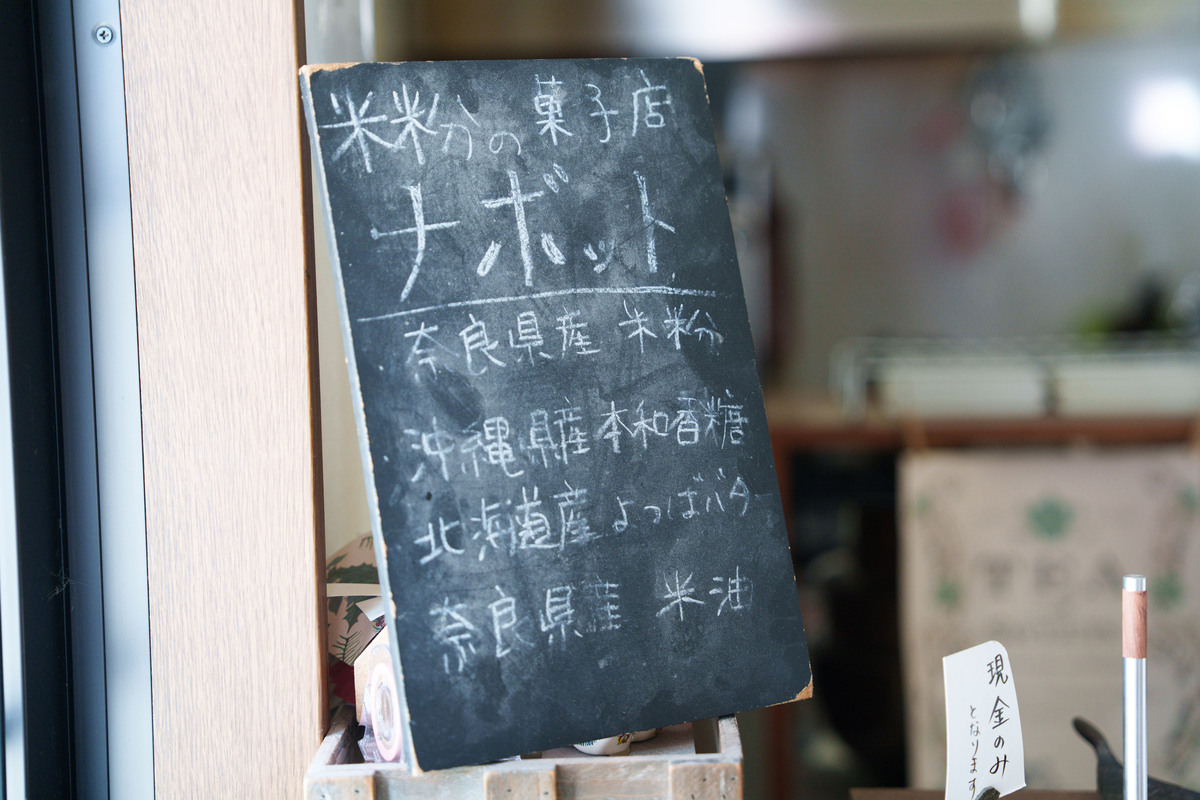 米粉の菓子店
ナボット
奈良県産 米粉
沖縄県産 本和香糖
北海道産 よつばバター
奈良県産 米油
現金のみ
となります
TEA